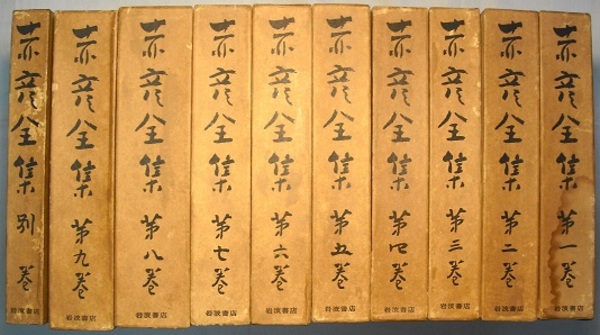 赤彦全集 第一巻
赤彦全集 第二巻
岩波書店
赤彦全集 第三巻
岩波書店
赤彦全集 第四巻
岩波書店
赤彦全集 第五巻
岩波書店
赤彦全集 第六巻
岩波書店
赤彦全集 第七巻
岩波書店
赤彦全集 第八巻
岩波書店
赤彦全集 第九巻
岩波書店
赤彦全集 別巻
岩波書店